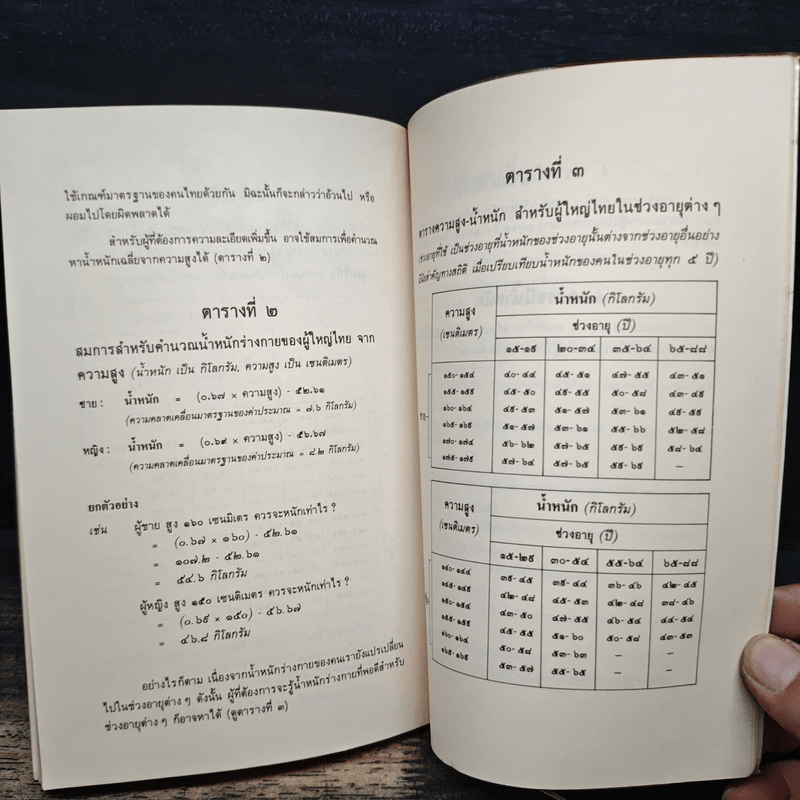 ใช้เกณฑ์มาตรฐานของคนไทยด้วยกัน มิฉะนั้นก็จะกล่าวว่าอ้วนไป หรือ
ผอมไปโดยผิดพลาดได้
สำหรับผู้ที่ต้องการความละเอียดเพิ่มขึ้น อาจใช้สมการเพื่อคำนวณ
หาน้ำหนักเฉลี่ยจากความสูงได้ (ตารางที่ ๒)
ตารางที่ ๒
สมการสำหรับคำนวณน้ำหนักร่างกายของผู้ใหญ่ไทย จาก
ความสูง (น้ำหนัก เป็น กิโลกรัม, ความสูง เป็น เซนติเมตร)
ชาย : น้ำหนัก = (๐.๖๗ × ความสูง) - ๕๒.๖๑
(ความคลาดเคลื่อนมาตรฐานของค่าประมาณ = ๗.๖ กิโลกรัม)
หญิง : น้ำหนัก = (๐.๖๙ × ความสูง) - ๕๖.๖๗
(ความคลาดเคลื่อนมาตรฐานของค่าประมาณ = ๘.๒ กิโลกรัม)
ยกตัวอย่าง
เช่น ผู้ชาย สูง ๑๖๐ เซนติเมตร ควรจะหนักเท่าไร ?
= (๐.๖๗ × ๑๖๐) - ๕๒.๖๑
= ๑๐๗.๒ - ๕๒.๖๑
= ๕๔.๖ กิโลกรัม
ผู้หญิง สูง ๑๕๐ เซนติเมตร ควรจะหนักเท่าไร ?
= (๐.๖๙ × ๑๕๐) - ๕๖.๖๗
= ๔๖.๘ กิโลกรัม
อย่างไรก็ตาม เนื่องจากน้ำหนักร่างกายของคนเรายังแปรเปลี่ยน
ไปในช่วงอายุต่าง ๆ ดังนั้น ผู้ที่ต้องการจะรู้น้ำหนักร่างกายที่พอดีสำหรับ
ช่วงอายุต่าง ๆ ก็อาจหาได้ (ดูตารางที่ ๓)
ตารางที่ ๓
ตารางความสูง-น้ำหนัก สำหรับผู้ใหญ่ไทยในช่วงอายุต่าง ๆ
(ช่วงอายุที่ใช้ เป็นช่วงอายุที่น้ำหนักของช่วงอายุนั้นต่างจากช่วงอายุอื่นอย่าง
มีนัยสำคัญทางสถิติ เมื่อเปรียบเทียบน้ำหนักของคนในช่วงอายุทุก ๕ ปี)
ความสูง (เซนติเมตร) น้ำหนัก (กิโลกรัม)
ช่วงอายุ (ปี)
๑๕-๑๙ ๒๐-๓๔ ๓๕-๖๔ ๖๕-๘๘
๑๕๐-๑๕๔ ๔๔-๔๘ ๔๕-๕๑ ๔๗-๕๕ ๔๓-๕๑
๑๕๕-๑๕๙ ๔๕-๕๐ ๔๙-๕๕ ๕๐-๕๘ ๔๓-๔๙
๑๖๐-๑๖๔ ๔๙-๕๓ ๕๑-๕๗ ๕๓-๖๑ ๔๙-๕๙
๑๖๕-๑๖๙ ๕๑-๕๗ ๕๓-๖๑ ๕๕-๖๖ ๕๒-๕๘
๑๗๐-๑๗๔ ๕๖-๖๒ ๕๗-๖๕ ๕๙-๖๙ ๕๘-๖๔
๑๗๕-๑๗๙ ๕๗-๖๔ ๕๗-๖๕ ๕๙-๖๙ –
ความสูง (เซนติเมตร) น้ำหนัก (กิโลกรัม)
ช่วงอายุ (ปี)
๑๕-๒๙ ๓๐-๕๔ ๕๕-๖๔ ๖๕-๘๘
๑๔๐-๑๔๔ ๓๙-๔๕ ๓๙-๔๔ ๓๖-๔๖ ๔๒-๔๕
๑๔๕-๑๔๙ ๔๒-๔๘ ๔๕-๕๓ ๔๒-๔๘ ๓๘-๔๖
๑๕๐-๑๕๔ ๔๓-๕๐ ๔๗-๕๕ ๔๖-๕๔ ๔๔-๕๔
๑๕๕-๑๕๙ ๔๕-๕๕ ๕๑-๖๐ ๕๐-๕๘ ๔๓-๕๓
๑๖๐-๑๖๔ ๕๐-๕๘ ๕๓-๖๓ – –
๑๖๕-๑๖๙ ๕๓-๕๗ ๕๕-๖๕ – –